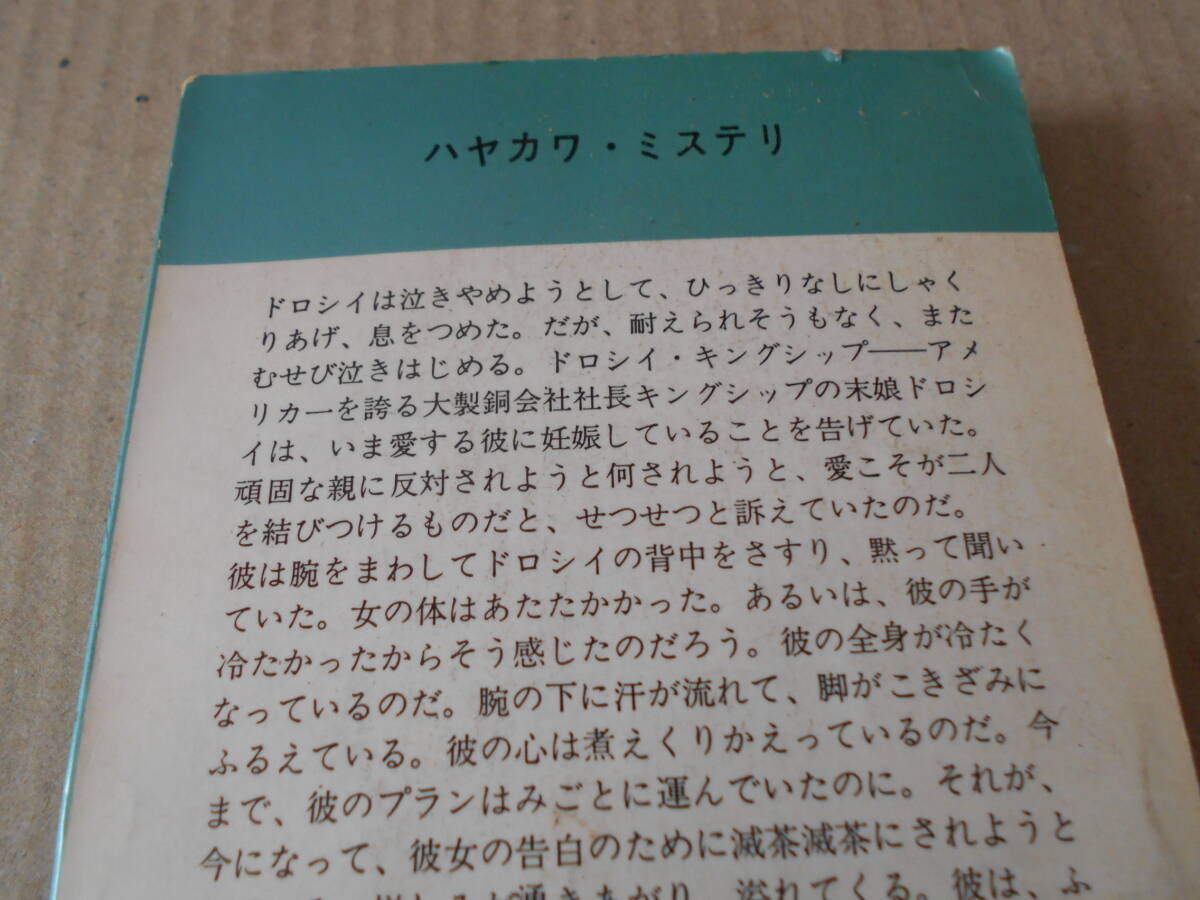 ハヤカワ・ミステリ
ドロシイは泣きやめようとして、ひっきりなしにしゃく
りあげ、息をつめた。だが、耐えられそうもなく、また
むせび泣きはじめる。ドロシイ・キングシップ――アメ
リカ一を誇る大製銅会社社長キングシップの末娘ドロシ
イは、いま愛する彼に妊娠していることを告げていた。
頑固な親に反対されようと何されようと、愛こそが二人
を結びつけるものだと、せつせつと訴えていたのだ。
彼は腕をまわしてドロシイの背中をさすり、黙って聞い
ていた。女の体はあたたかかった。あるいは、彼の手が
冷たかったからそう感じたのだろう。彼の全身が冷たく
なっているのだ。腕の下に汗が流れて、脚がこきざみに
ふるえている。彼の心は煮えくりかえっているのだ。今
まで、彼のプランはみごとに運んでいたのに。それが、
今になって、彼女の告白のために滅茶滅茶にされようと
が湧きあがり、溢れてくる。彼は、ふ